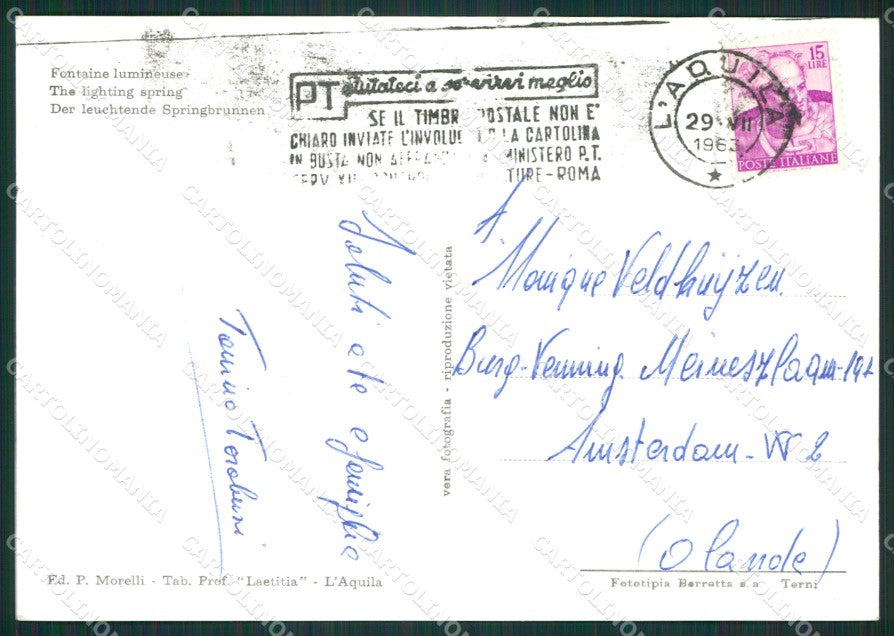 Fontaine lumineuse
The lighting spring
Der leuchtende Springbrunnen
PT aiutateci a servirvi meglio
SE IL TIMBR POSTALE NON E'
CHIARO INVIATE L'INVOLUC LA CARTOLINA
IN BUSTA NON AFFRANC MINISTERO P.T.
TURE-ROMA
L'AQUILA
29 VII
1963
15
LIRE
POSTE ITALIANE
Saluti a te e famiglia
Tonino
vera fotografia - riproduzione vietata
A
Monique Veldhuijzen
Burg. Venning Meineszlaan
Amsterdam - W 2
(Olanda)
Ed. P. Morelli - Tab. Prof. "Laetitia" - L'Aquila
Fototipia Berretta s.a Terni
CARTOLINOMANIA